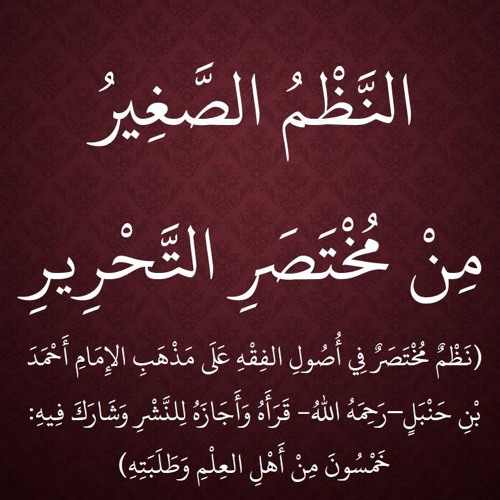 النَّظْمُ الصَّغِيرُ
مِنْ مُخْتَصَرِ التَّحْرِيرِ
(نَظْمٌ مُخْتَصَرٌ فِي أُصُولِ الفِقْهِ عَلَى مَذْهَبِ الإِمَامِ أَحْمَدَ
بْنِ حَنْبَلٍ–رَحِمَهُ اللهُ- قَرَأَهُ وَأَجَازَهُ لِلنَّشْرِ وَشَارَكَ فِيهِ:
خَمْسُونَ مِنْ أَهْلِ العِلْمِ وَطَلَبَتِهِ)